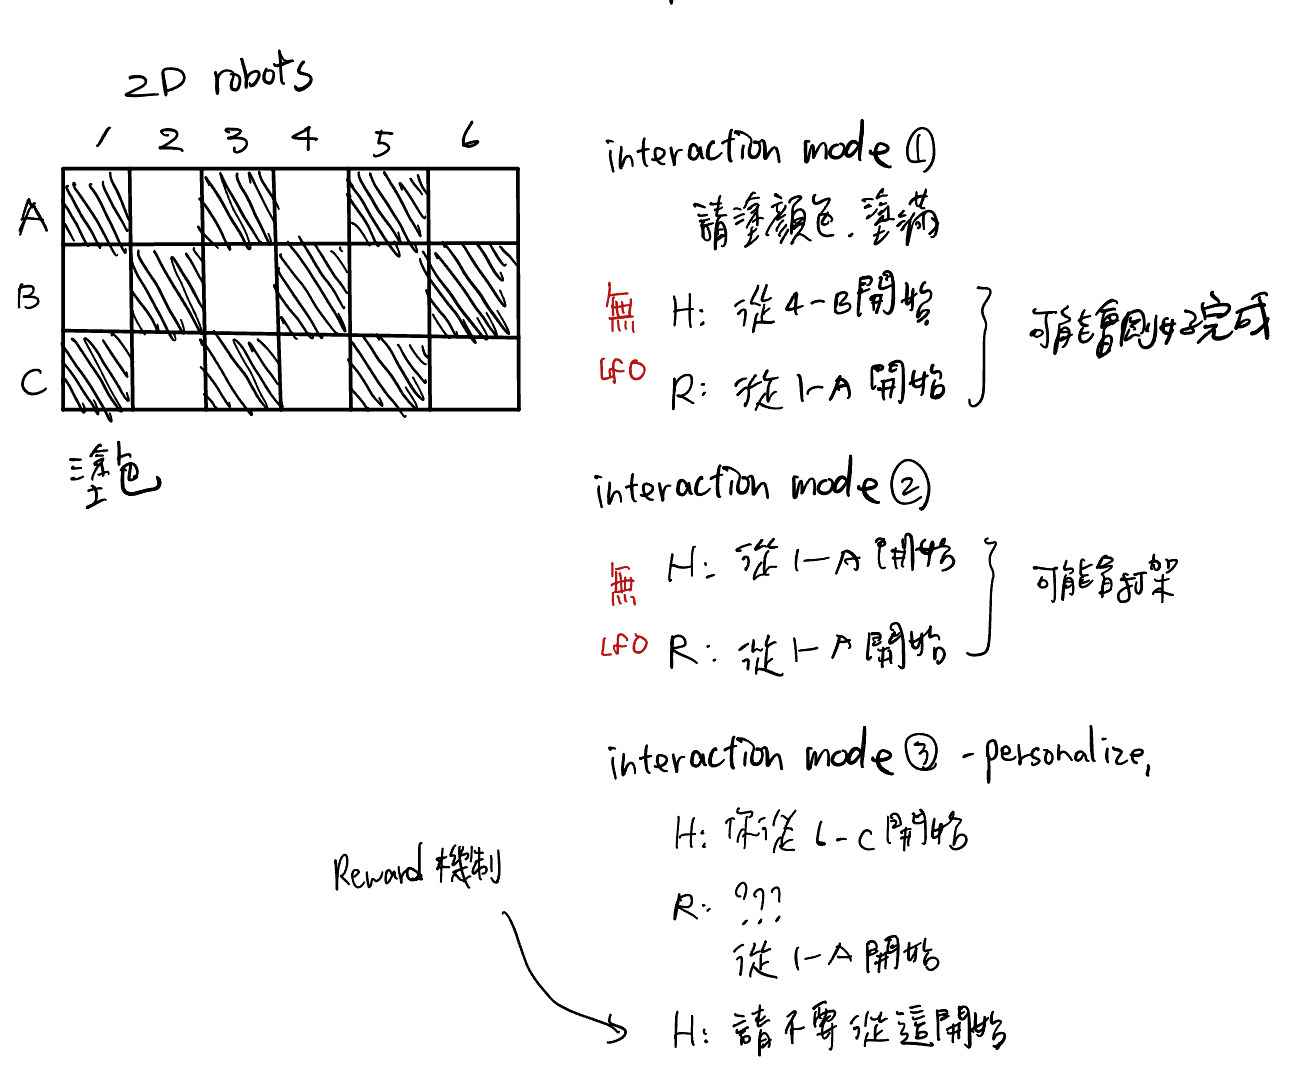 2D robots
1 2 3 4 5 6
A
B
C
塗色
interaction mode ①
請塗顏色.塗滿
無
LfO
H: 從4-B開始
R: 從1-A開始
可能會剛好完成
interaction mode ②
無
LfO
H: 從1-A開始
R: 從1-A開始
可能會打架
interaction mode ③ - personalize,
H: 你從6-C開始
R: ???
從1-A開始
Reward 機制
H: 請不要從這開始